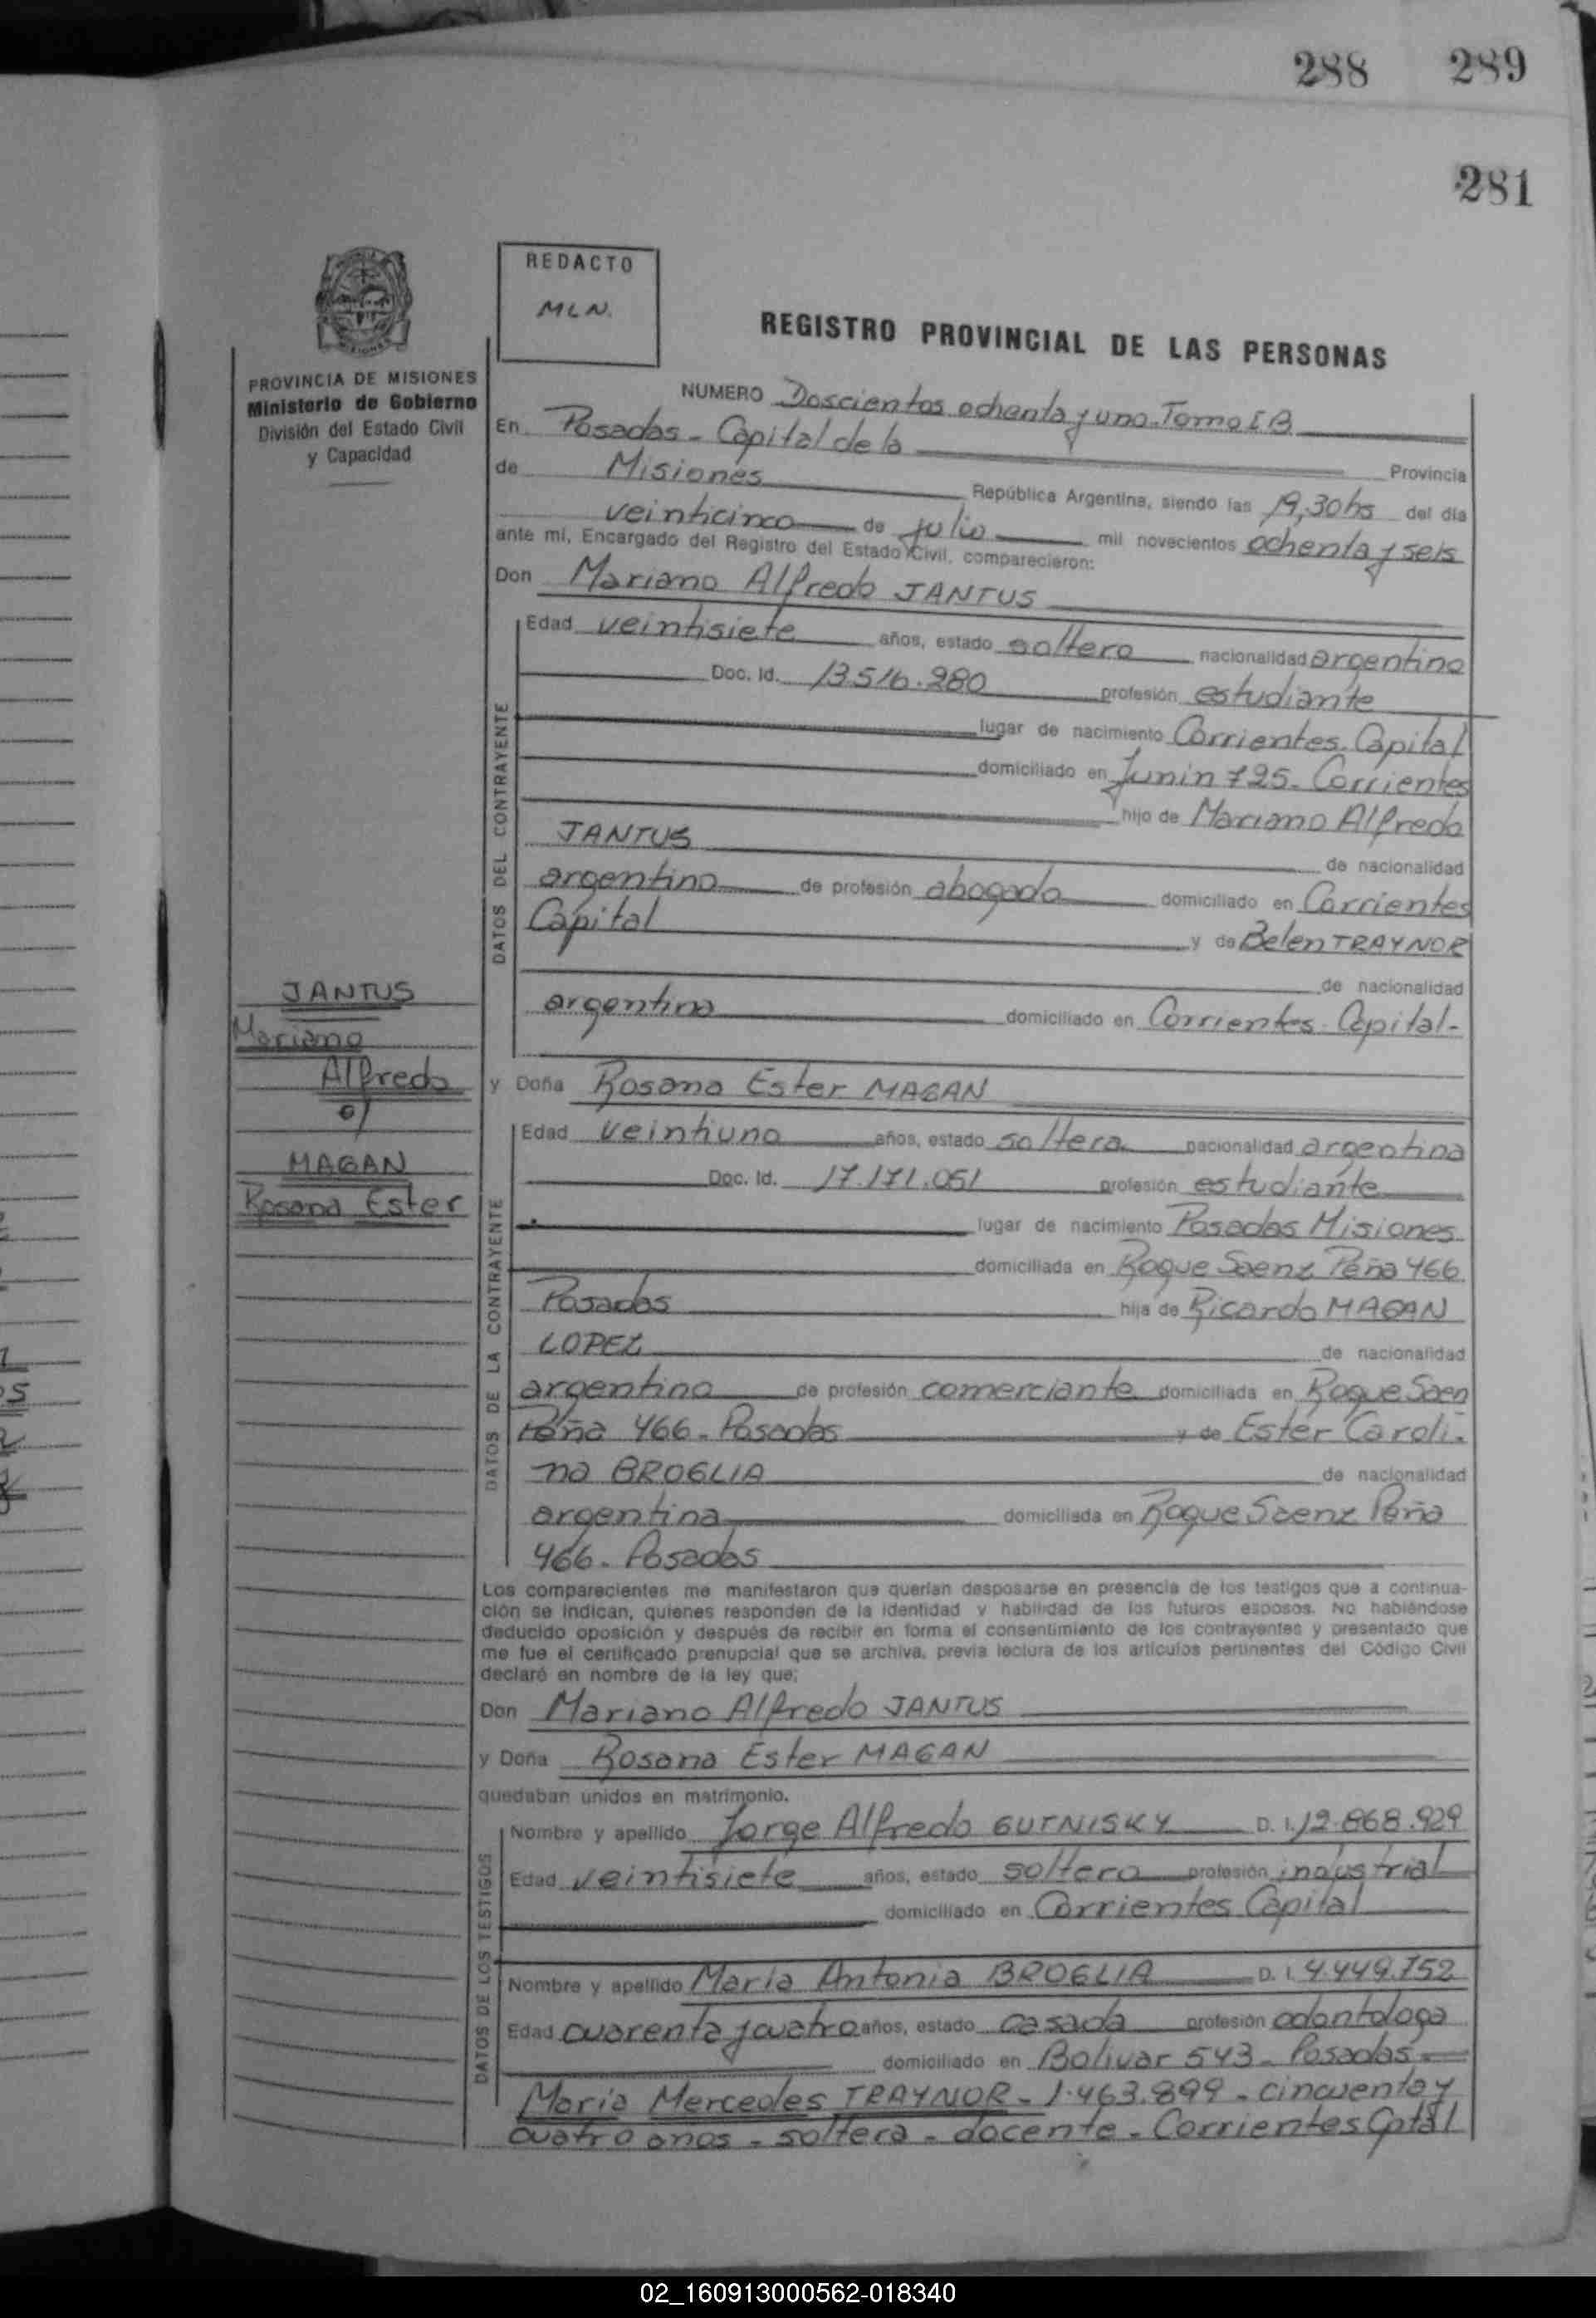 288 289
281
REDACTO
MLN.
REGISTRO PROVINCIAL DE LAS PERSONAS
PROVINCIA DE MISIONES
Ministerio de Gobierno
División del Estado Civil
y Capacidad
NUMERO Doscientos ochenta y uno. Tomo I B
En Posadas - Capital de la Provincia
de Misiones República Argentina, siendo las 19,30hs del día
veinticinco de julio mil novecientos ochenta y seis
ante mí, Encargado del Registro del Estado Civil, comparecieron:
Don Mariano Alfredo JANTUS
DATOS DEL CONTRAYENTE
Edad veintisiete años, estado soltero nacionalidad argentino
Doc. Id. 13.516.280 profesión estudiante
lugar de nacimiento Corrientes. Capital
domiciliado en Junin 725. Corrientes
hijo de Mariano Alfredo
JANTUS de nacionalidad
argentino de profesión abogado domiciliado en Corrientes
Capital y de Belen TRAYNOR
de nacionalidad
argentina domiciliado en Corrientes. Capital-
JANTUS
Mariano
Alfredo
c/
MAGAN
Rosana Ester
y Doña Rosana Ester MAGAN
DATOS DE LA CONTRAYENTE
Edad veintiuno años, estado soltera nacionalidad argentina
Doc. Id. 17.171.051 profesión estudiante
lugar de nacimiento Posadas Misiones
domiciliada en Roque Saenz Peña 466
Posadas hija de Ricardo MAGAN
LOPEZ de nacionalidad
argentino de profesión comerciante domiciliada en Roque Saen
Peña 466. Posadas y de Ester Caroli-
na BROGLIA de nacionalidad
argentina domiciliada en Roque Saenz Peña
466. Posadas
Los comparecientes me manifestaron que querían desposarse en presencia de los testigos que a continua-
ción se indican, quienes responden de la identidad y habilidad de los futuros esposos. No habiéndose
deducido oposición y después de recibir en forma el consentimiento de los contrayentes y presentado que
me fue el certificado prenupcial que se archiva, previa lectura de los artículos pertinentes del Código Civil
declaré en nombre de la ley que;
Don Mariano Alfredo JANTUS
y Doña Rosana Ester MAGAN
quedaban unidos en matrimonio.
DATOS DE LOS TESTIGOS
Nombre y apellido Jorge Alfredo GUTNISKY D. I. 12.868.929
Edad veintisiete años, estado soltero profesión industrial
domiciliado en Corrientes Capital
Nombre y apellido Maria Antonia BROGLIA D. I. 4.449.752
Edad cuarenta y cuatro años, estado casada profesión odontologa
domiciliado en Bolivar 543 - Posadas
Maria Mercedes TRAYNOR - 1.463.899 - cincuenta y
cuatro anos - soltera - docente - Corrientes Cptal
02_160913000562-018340